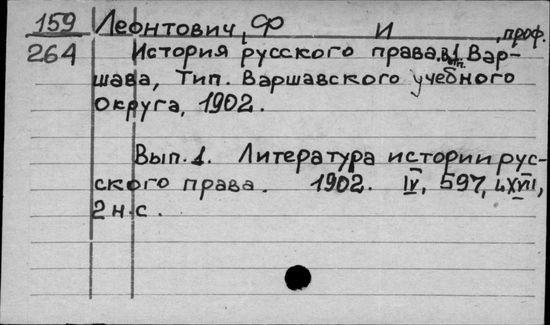 159 Леонтович, Ф И , проф.
264 История русского права. Вып. 1. Вар-
шава, Тип. Варшавского учебного
Округа, 1902.
Вып. 1. Литература истории рус-
ского права. 1902. IV, 597, LXVII,
2 н.с.